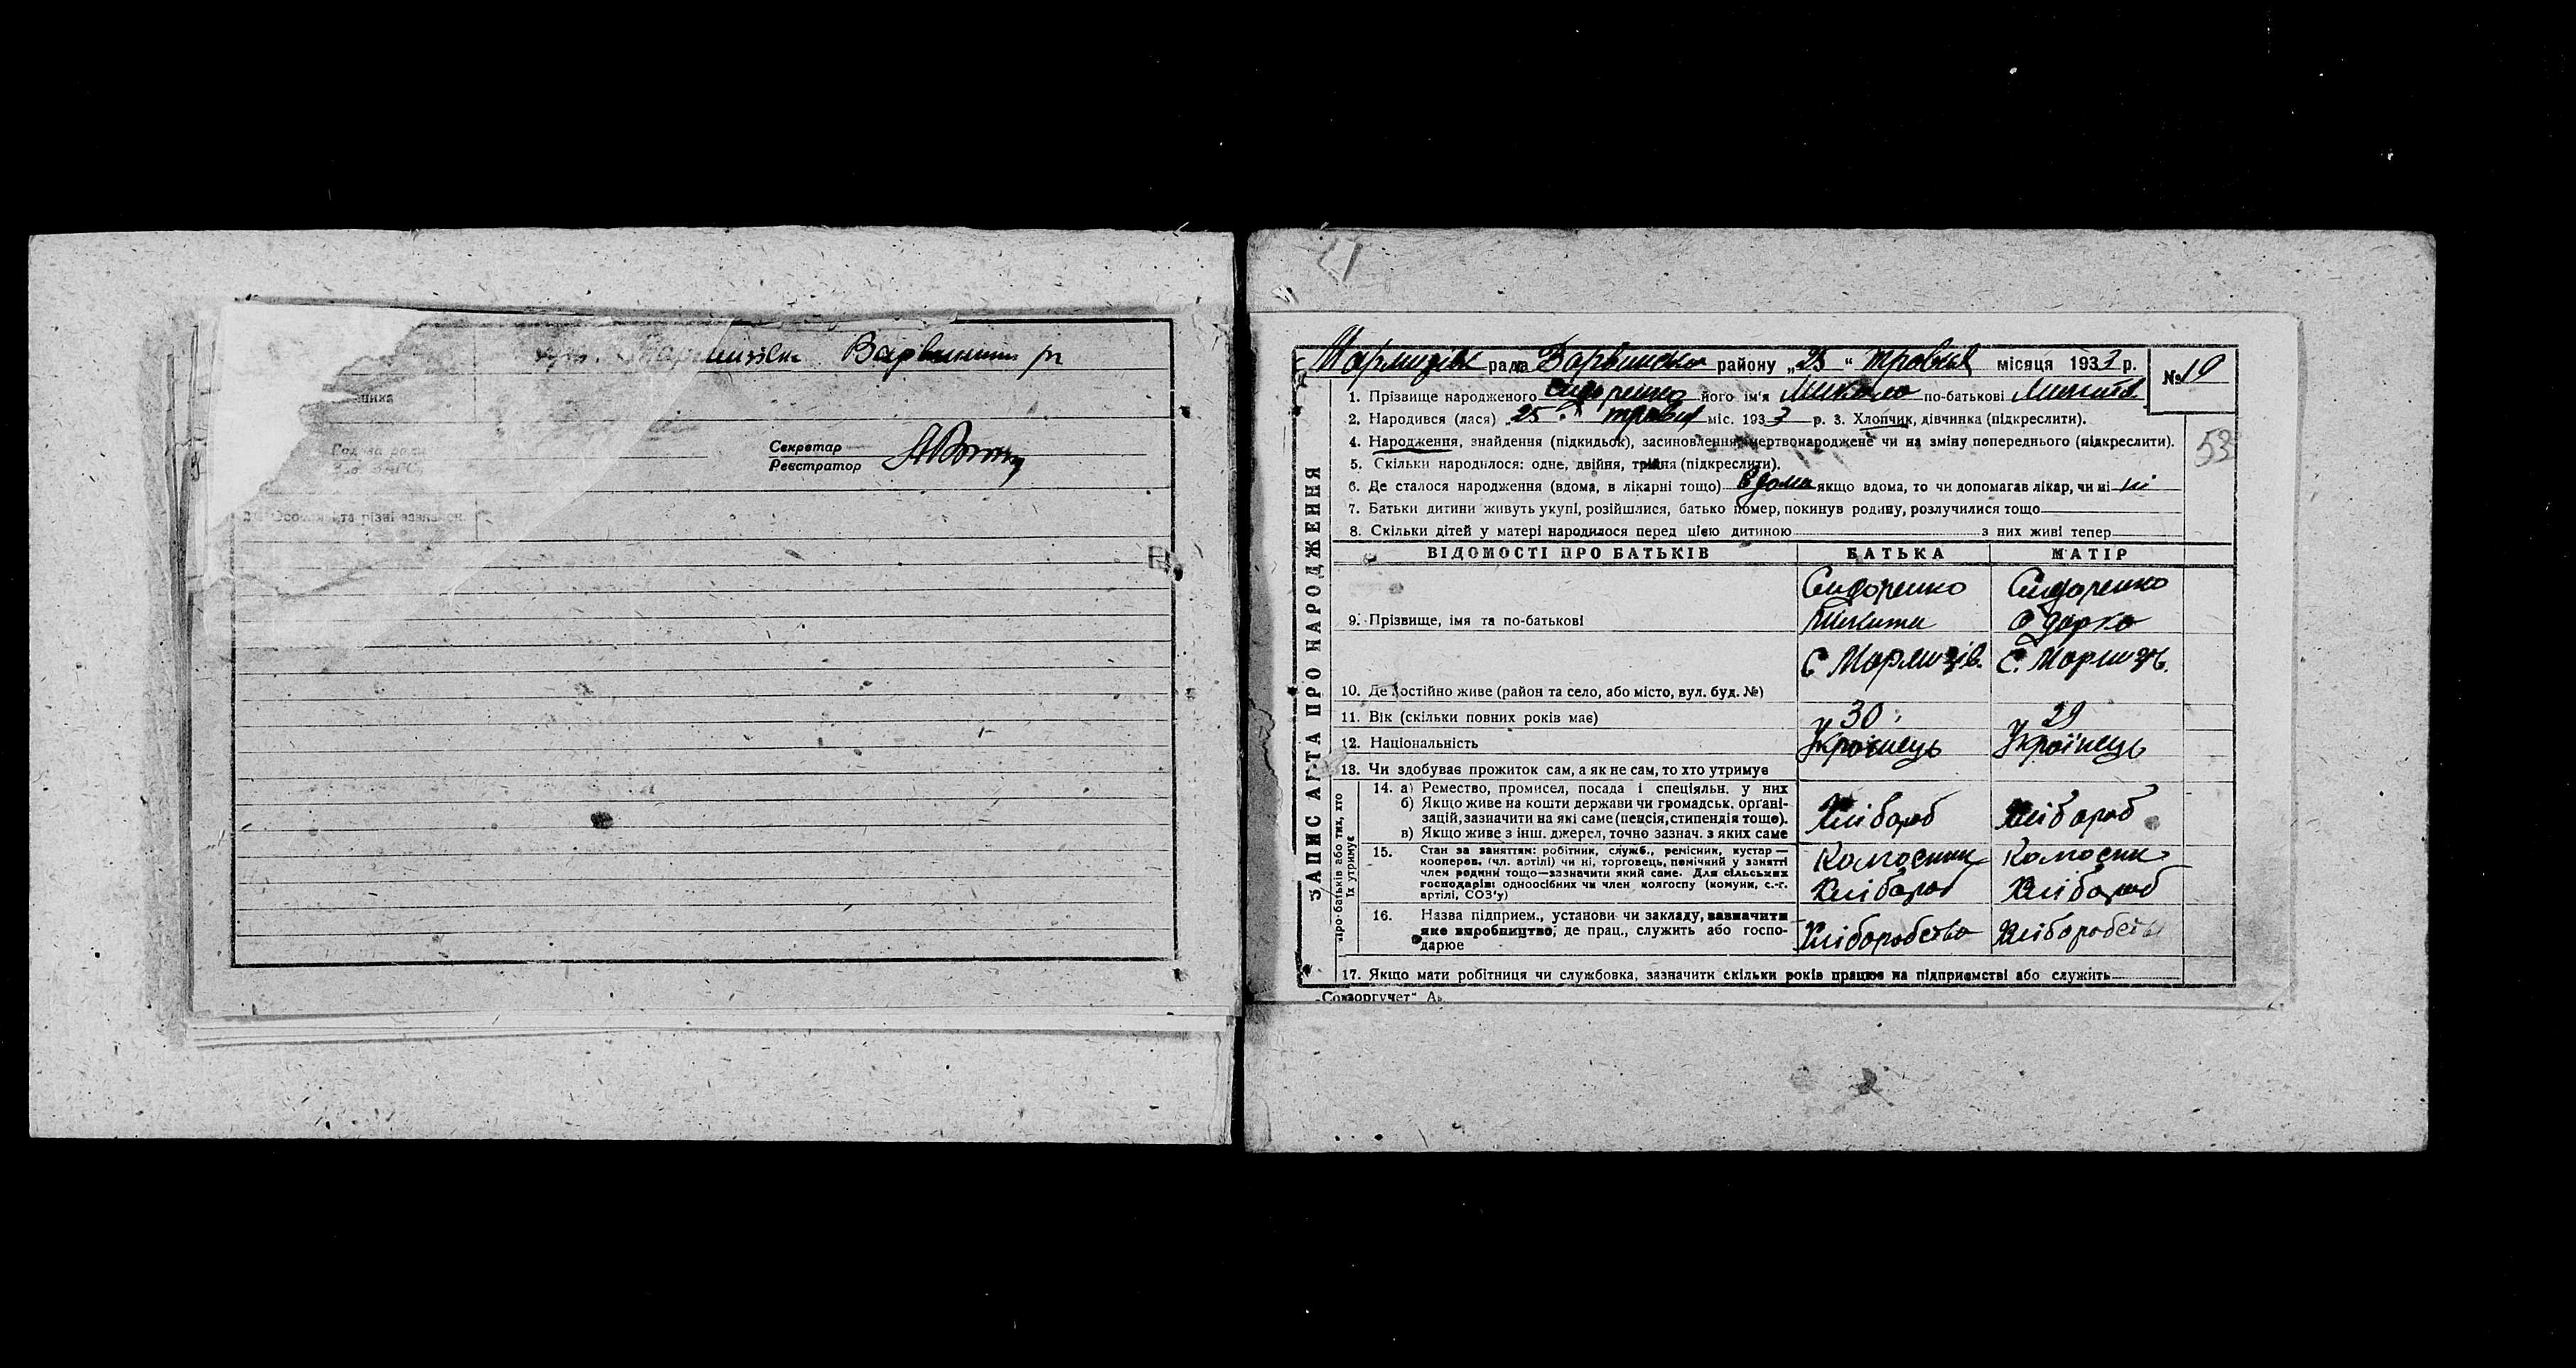 Варвинськ р
щика
Секретар
Реєстратор
Особливі та різні зазначен.
ЗАПИС АКТА ПРО НАРОДЖЕННЯ
рада Варвинсько району „25“ травня місяця 1933 р.
№ 19
1. Прізвище народженого Сидоренко його ім'я Микола по-батькові Микитов.
2. Народився (лася) „25“ травня міс. 1933 р. 3. Хлопчик, дівчинка (підкреслити).
4. Народження, знайдення (підкидьок), засиновлення, мертвонароджене чи на зміну попереднього (підкреслити).
53
5. Скільки народилося: одне, двійня, трійня (підкреслити).
6. Де сталося народження (вдома, в лікарні тощо) вдома якщо вдома, то чи допомагав лікар, чи ні ні
7. Батьки дитини живуть укупі, розійшлися, батько помер, покинув родину, розлучилися тощо
8. Скільки дітей у матері народилося перед цією дитиною з них живі тепер
ВІДОМОСТІ ПРО БАТЬКІВ БАТЬКА МАТІР
Сидоренко Сидоренко
9. Прізвище, імя та по-батькові Микита Одарка
10. Де постійно живе (район та село, або місто, вул. буд. №)
11. Вік (скільки повних років має) 30 29
12. Національність Українець Українець
13. Чи здобуває прожиток сам, а як не сам, то хто утримує
Про батьків або тих, хто їх утримує
14. а) Ремество, промисел, посада і спеціяльн. у них
б) Якщо живе на кошти держави чи громадськ. органі-
зацій, зазначити на які саме (пенсія, стипендія тощо).
в) Якщо живе з інш. джерел, точно зазнач. з яких саме
Хлібороб Хлібороб
15. Стан за заняттям: робітник, служб., ремісник, кустар —
кооперов. (чл. артілі) чи ні, торговець, помічний у занятті
член родини тощо—зазначити який саме. Для сільських
господарів: одноосібних чи член колгоспу (комуни, с.-г.
артілі, СОЗ'у)
Хлібороб Хлібороб
16. Назва підприєм., установи чи закладу, зазначити
яке виробництво, де прац., служить або госпо-
дарює
Хліборобство Хліборобство
17. Якщо мати робітниця чи службовка, зазначити скільки років працює на підприємстві або служить